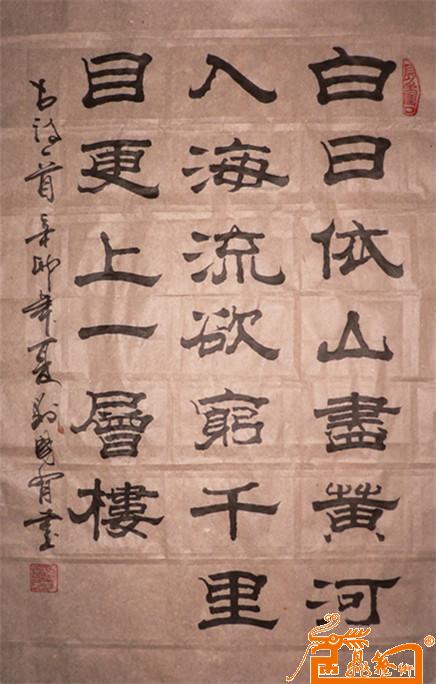 白日依山盡黃河
入海流欲窮千里
目更上一層樓
古詩一首辛卯年夏